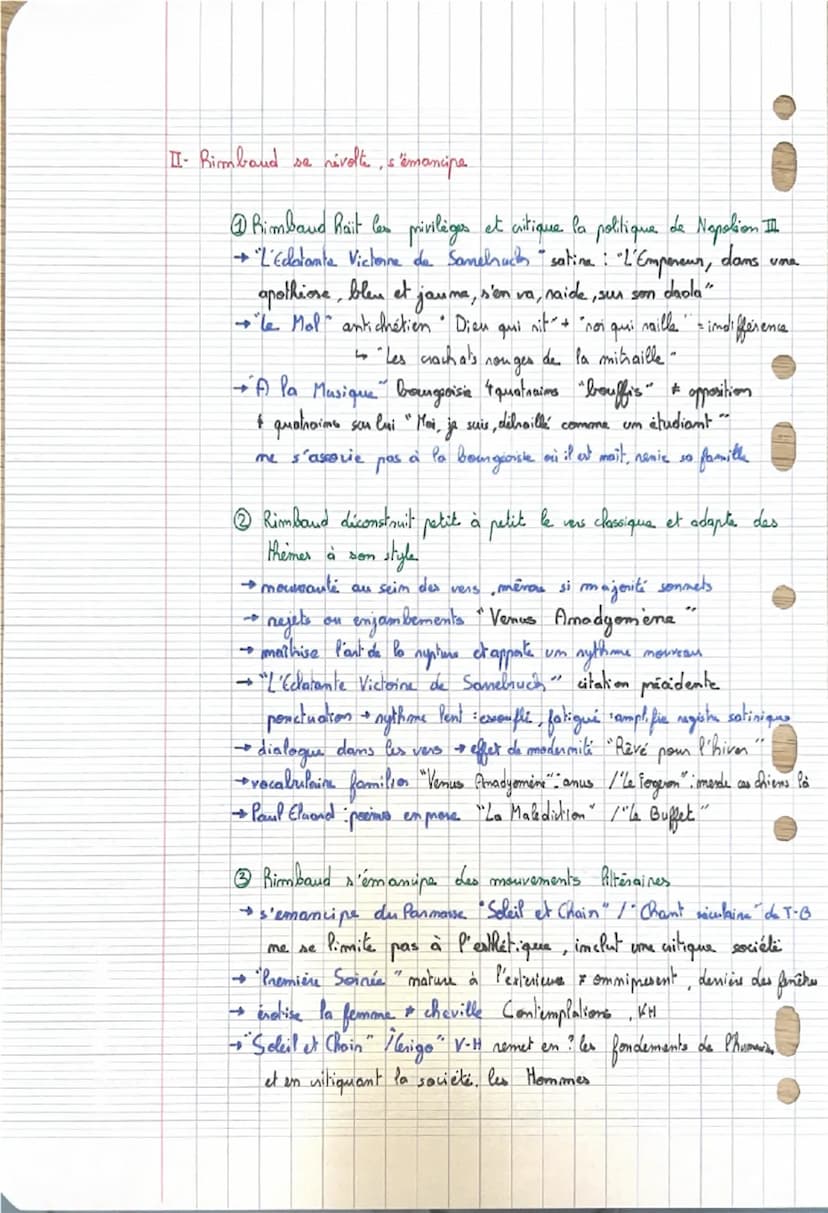 II- Rimbaud se révolte, s'émancipe
① Rimbaud haït les privilèges et critique la politique de Napoléon III
→ "L'Eclatante Victoire de Sarrebruck" satire : "L'Empereur, dans une
apothéose, bleu et jaune, s'en va, raide, sur son dada"
→ "Le Mal" antichrétien "Dieu qui rit" + "roi qui raille" = indifférence
↳ "Les crachats rouges de la mitraille"
→ "A la Musique" bourgeoisie 4 quatrains "bouffis" ≠ opposition
quatrains sur lui "Moi, je suis, débraillé comme un étudiant"
ne s'associe pas à la bourgeoisie où il est naît, renie sa famille
② Rimbaud déconstruit petit à petit le vers classique et adapte des
thèmes à son style
→ nouveauté au sein des vers, même si majorité sonnets
→ rejets ou enjambements "Venus Anadyomène"
→ maîtrise l'art de la rupture et apporte un rythme nouveau
→ "L'Eclatante Victoire de Sarrebruck" citation précédente
ponctuation → rythme lent : essouflé, fatigué : amplifie registre satirique
→ dialogue dans les vers → effet de modernité "Rêvé pour l'hiver"
→ vocabulaire familier "Venus Anadyomène" : anus / "Le Forgeron" : merde ces chiens là
→ Paul Eluard : poèmes en prose "La Malédiction" / "Le Buffet"
③ Rimbaud s'émancipe des mouvements littéraires
→ s'emancipe du Parnasse "Soleil et Chair" / "Chant séculaire" de T-B
ne se limite pas à l'esthétique, inclut une critique société
→ "Première Soirée" nature à l'exterieure ≠ omniprésent, derrière des fenêtres
→ érotise la femme ≠ cheville Contemplations, VH
→ "Soleil et Chair" / V-H remet en ? les fondements de
et en critiquant la société, les Hommes